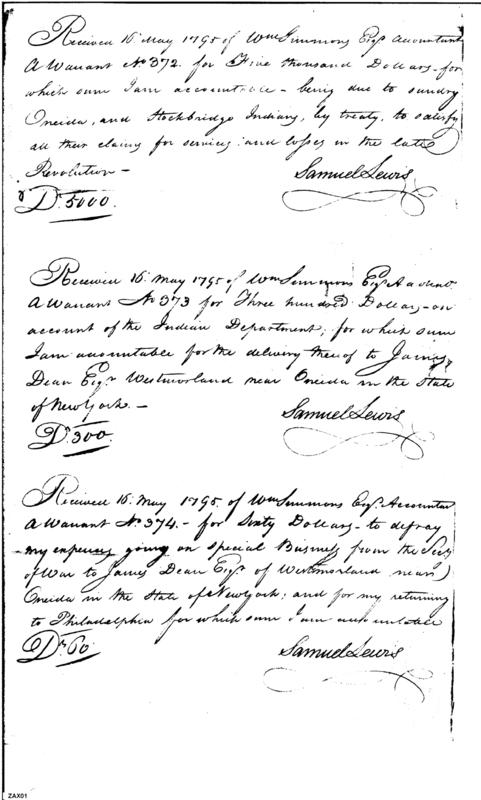 Received 16 May 1795 of Wm Simmons Esqr. Accountant
A Warrant No 372. for Five thousand Dollars - for
which sum I am accountable - being due to sundry
Oneida, and Stockbridge Indians, by treaty, to satisfy
all their claims for services and losses in the late
Revolution - Samuel Lewis
Drs. 5000.
Received 16 May 1795 of Wm Simmons Esqr
A Warrant No 373 for Three hundred Dollars - on
account of the Indian Department; for which sum
I am accountable for the delivery thereof to James
Dean Esqr Westmorland near Oneida in the State
of New York. - Samuel Lewis
Drs. 300.
Received 16 May 1795. of Wm Simmons Esqr. Accountant
A Warrant No 374. - for Sixty Dollars - to defray
my expences going on special Business from the Secy
of War to James Dean Esqr of Westmorland near
Oneida in the State of New York; and for my returning
to Philadelphia for which sum I am accountable
Drs. 60. Samuel Lewis
ZAX01